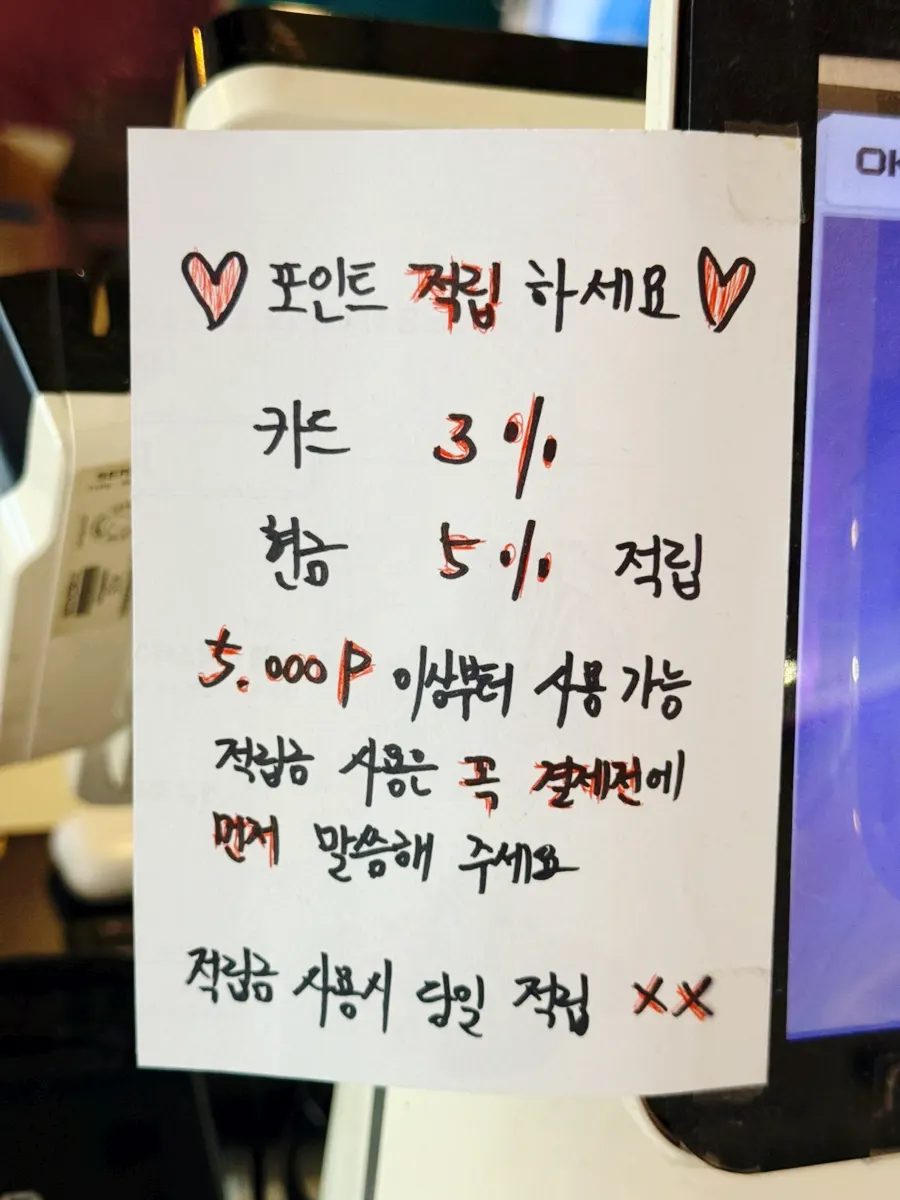 ♡ 포인트 적립 하세요 ♡
카드 3%
현금 5% 적립
5.000P 이상부터 사용 가능
적립금 사용은 꼭 결제전에
먼저 말씀해 주세요
적립금 사용시 당일 적립 XX
OK